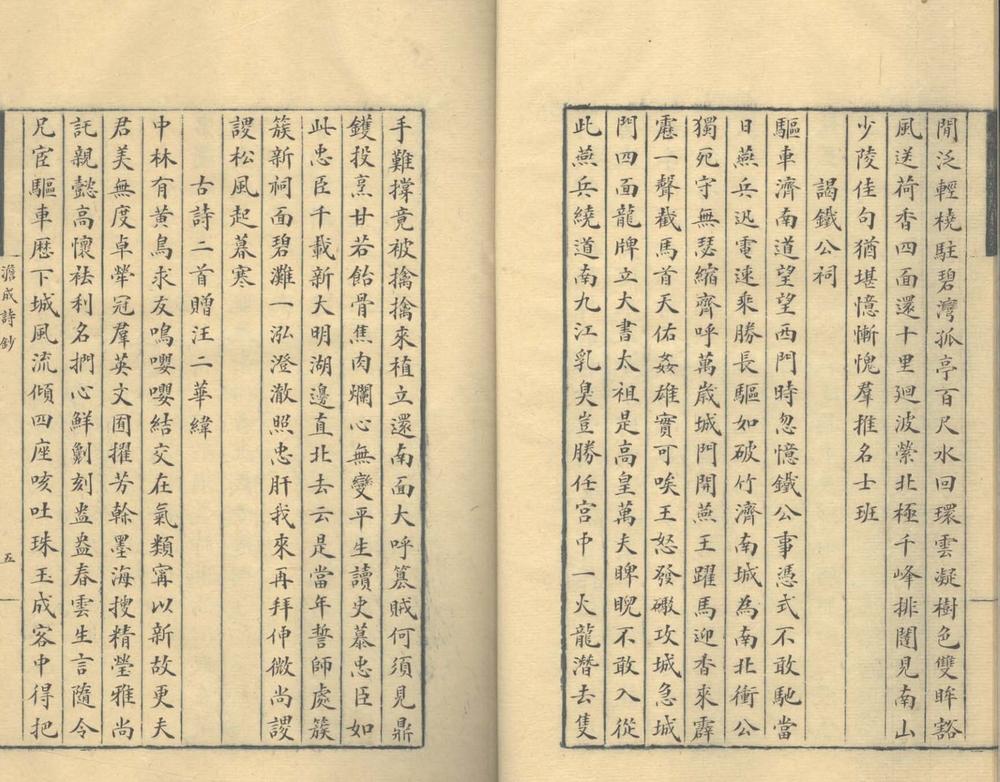 閒泛輕橈駐碧灣孤亭百尺水回環雲凝樹色雙眸豁
風送荷香四面還十里廻波縈北極千峰排闥見南山
少陵佳句猶堪憶慚愧羣推名士班
謁鐵公祠
驅車濟南道望望西門時忽憶鐵公事憑式不敢馳當
日燕兵迅電速乘勝長驅如破竹濟南城為南北衝公
獨死守無瑟縮齊呼萬歲城門開燕王躍馬迎香來霹
靂一聲截馬首天佑姦雄實可唉王怒發礮攻城急城
門四面龍牌立大書太祖是高皇萬夫睥睨不敢入從
此燕兵繞道南九江乳臭豈勝任宮中一火龍潛去隻
手難撐竟被擒擒來植立還南面大呼篡賊何須見鼎
鑊投烹甘若飴骨焦肉爛心無變平生讀史慕忠臣如
此忠臣千載新大明湖邊直北去云是當年誓師處簇
簇新祠面碧灘一泓澄澈照忠肝我來再拜伸微尚謖
謖松風起暮寒
古詩二首贈汪二華緯
中林有黃鳥求友鳴嚶嚶結交在氣類甯以新故更夫
君美無度卓犖冠羣英文囿擢芳榦墨海搜精瑩雅尚
託親懿高懷袪利名捫心鮮劖刻盎盎春雲生言隨令
尺宦驅車歷下城風流傾四座咳吐珠玉成客中得把
澹成詩鈔
五